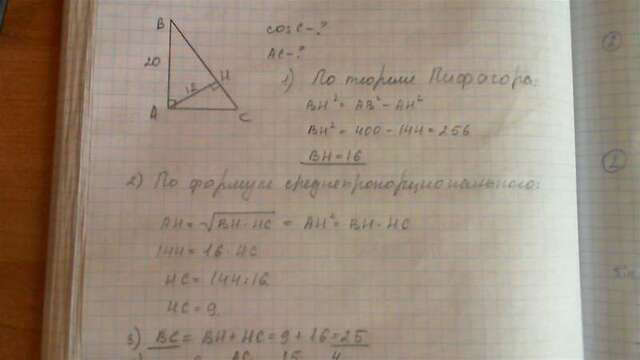 B
cosC - ?
AC - ?
20
H
12
A
C
1) По теореме Пифагора:
BH² = AB² - AH²
BH² = 400 - 144 = 256
BH = 16
2) По формуле среднепропорционального:
AH = √BH·HC = AH² = BH·HC
144 = 16·HC
HC = 144:16
HC = 9
3) BC = BH + HC = 9 + 16 = 25